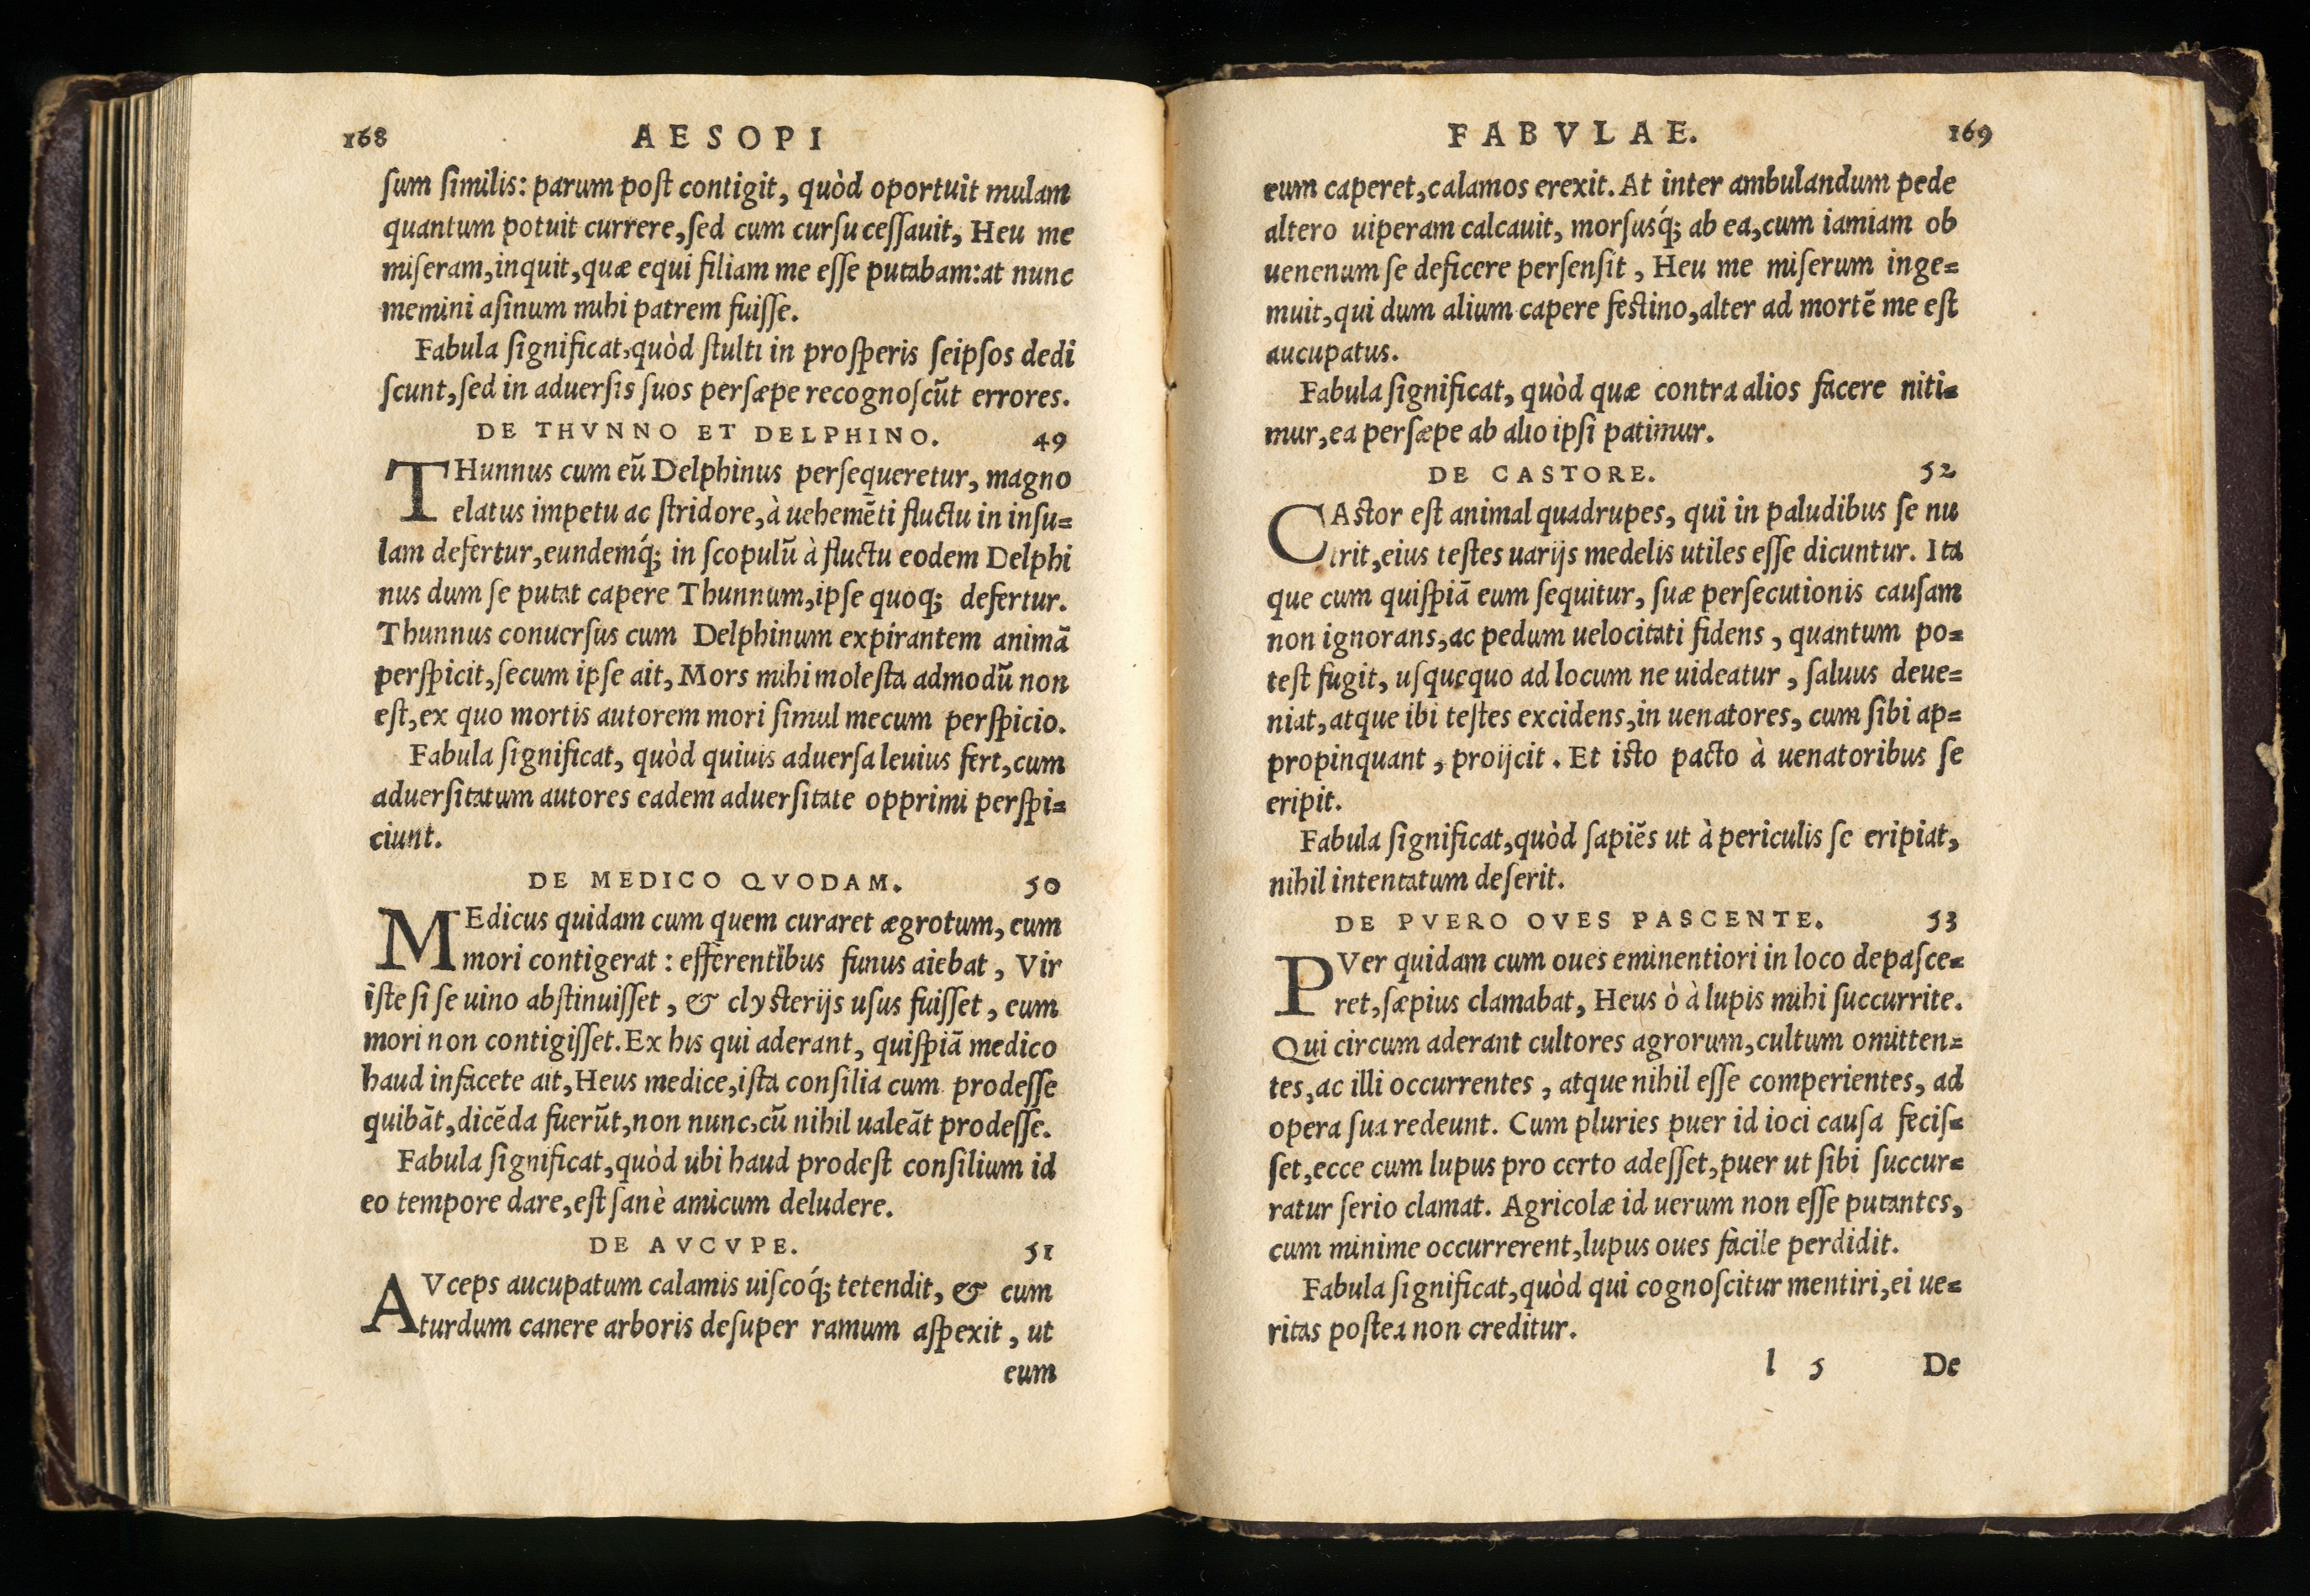 168 AESOPI
ſum ſimilis: parum poſt contigit, quòd oportuit mulam
quantum potuit currere, ſed cum curſu ceſſauit, Heu me
miſeram, inquit, quæ equi filiam me eſſe putabam: at nunc
memini aſinum mihi patrem fuiſſe.
Fabula ſignificat, quòd ſtulti in proſperis ſeipſos dedi
ſcunt, ſed in aduerſis ſuos perſæpe recognoſcūt errores.
DE THVNNO ET DELPHINO. 49
THunnus cum eū Delphinus perſequeretur, magno
elatus impetu ac ſtridore, à uehemēti fluctu in inſu=
lam defertur, eundemq́; in ſcopulū à fluctu eodem Delphi
nus dum ſe putat capere Thunnum, ipſe quoq; defertur.
Thunnus conuerſus cum Delphinum expirantem animā
perſpicit, ſecum ipſe ait, Mors mihi moleſta admodū non
eſt, ex quo mortis autorem mori ſimul mecum perſpicio.
Fabula ſignificat, quòd quiuis aduerſa leuius fert, cum
aduerſitatum autores eadem aduerſitate opprimi perſpi=
ciunt.
DE MEDICO QVODAM. 50
MEdicus quidam cum quem curaret ægrotum, eum
mori contigerat: efferentibus funus aiebat, Vir
iſte ſi ſe uino abſtinuiſſet, & clyſterijs uſus fuiſſet, eum
mori non contigiſſet. Ex his qui aderant, quiſpiā medico
haud infacete ait, Heus medice, iſta conſilia cum prodeſſe
quibāt, dicēda fuerūt, non nunc, cū nihil ualeāt prodeſſe.
Fabula ſignificat, quòd ubi haud prodeſt conſilium id
eo tempore dare, eſt ſanè amicum deludere.
DE AVCVPE. 51
AVceps aucupatum calamis uiſcoq́; tetendit, & cum
turdum canere arboris deſuper ramum aſpexit, ut
eum
FABVLAE. 169
eum caperet, calamos erexit. At inter ambulandum pede
altero uiperam calcauit, morſusq́; ab ea, cum iamiam ob
uenenum ſe deficere perſenſit, Heu me miſerum inge=
muit, qui dum alium capere feſtino, alter ad mortē me eſt
aucupatus.
Fabula ſignificat, quòd quæ contra alios facere niti=
mur, ea perſæpe ab alio ipſi patimur.
DE CASTORE. 52
CAſtor eſt animal quadrupes, qui in paludibus ſe nu
trit, eius teſtes uarijs medelis utiles eſſe dicuntur. Ita
que cum quiſpiā eum ſequitur, ſuæ perſecutionis cauſam
non ignorans, ac pedum uelocitati fidens, quantum po=
teſt fugit, uſquequo ad locum ne uideatur, ſaluus deue=
niat, atque ibi teſtes excidens, in uenatores, cum ſibi ap=
propinquant, proijcit. Et iſto pacto à uenatoribus ſe
eripit.
Fabula ſignificat, quòd ſapiēs ut à periculis ſe eripiat,
nihil intentatum deſerit.
DE PVERO OVES PASCENTE. 53
PVer quidam cum oues eminentiori in loco depaſce=
ret, ſæpius clamabat, Heus ò à lupis mihi ſuccurrite.
Qui circum aderant cultores agrorum, cultum omitten=
tes, ac illi occurrentes, atque nihil eſſe comperientes, ad
opera ſua redeunt. Cum pluries puer id ioci cauſa feciſ=
ſet, ecce cum lupus pro certo adeſſet, puer ut ſibi ſuccur=
ratur ſerio clamat. Agricolæ id uerum non eſſe putantes,
cum minime occurrerent, lupus oues facile perdidit.
Fabula ſignificat, quòd qui cognoſcitur mentiri, ei ue=
ritas poſtea non creditur.
l 5 De